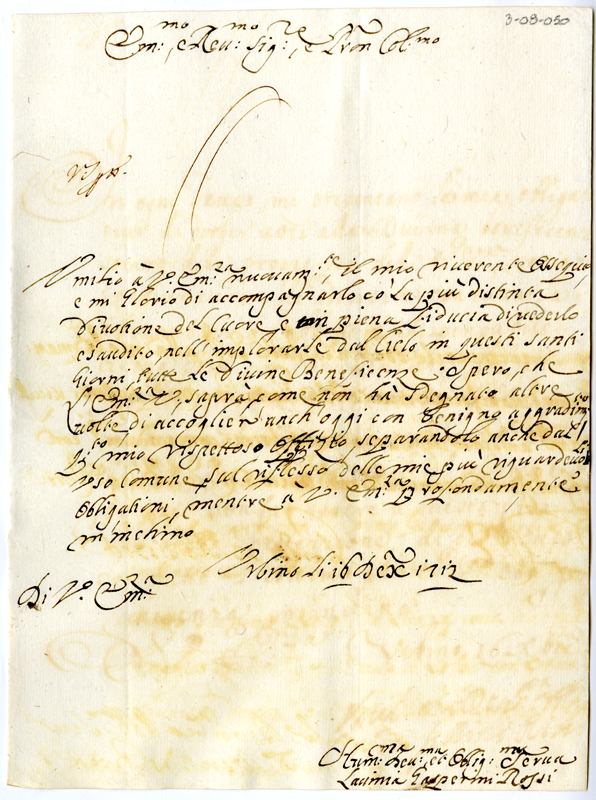 3-08-050
Em:mo, e Reu:mo Sig:re, e Pron Col:mo
Umilio à V.a Em:za nuouam:te, il mio riuerente Ossequio
e mi glorio di accompagnarlo cō la più distinta
Diuotione del Cuore, e con piena fiducia di uederlo
esaudito, nell'implorarle dal Cielo in questi Santi
Giorni, tutte le Diuine Beneficenze: Spero, che
l'Em:za V., saprà, come non hà sdegnato altre
uolte di accoglier anch'oggi con benigno aggradim:to
q:to mio rispettoso offizio separandolo anche dal
uso Comune, sul riflesso delle mie più riguardeuoli
obligationi, mentre à V. Em:za profondamente
m'inchino
Urbino li 16 Dex 1712
Di V.a Em:za
Hum:ma Deu:ma et Oblig:ma Serua
Lauinia Gasperini Rossi